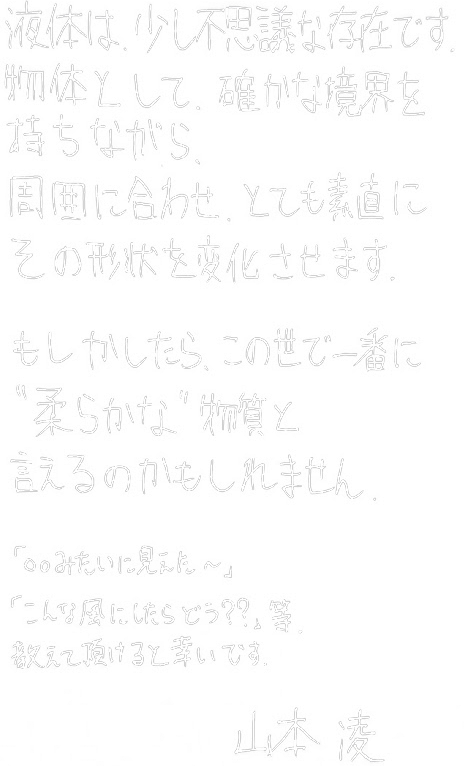 液体は、少し不思議な存在です。
物体として、確かな境界を
持ちながら、
周囲に合わせ、とても素直に
その形状を変化させます。
もしかしたら、この世で一番に
"柔らかな"物質と
言えるのかもしれません。
「○○みたいに見えた〜」
「こんな風にしたらどう??」等、
教えて頂けると幸いです。
山本 凌